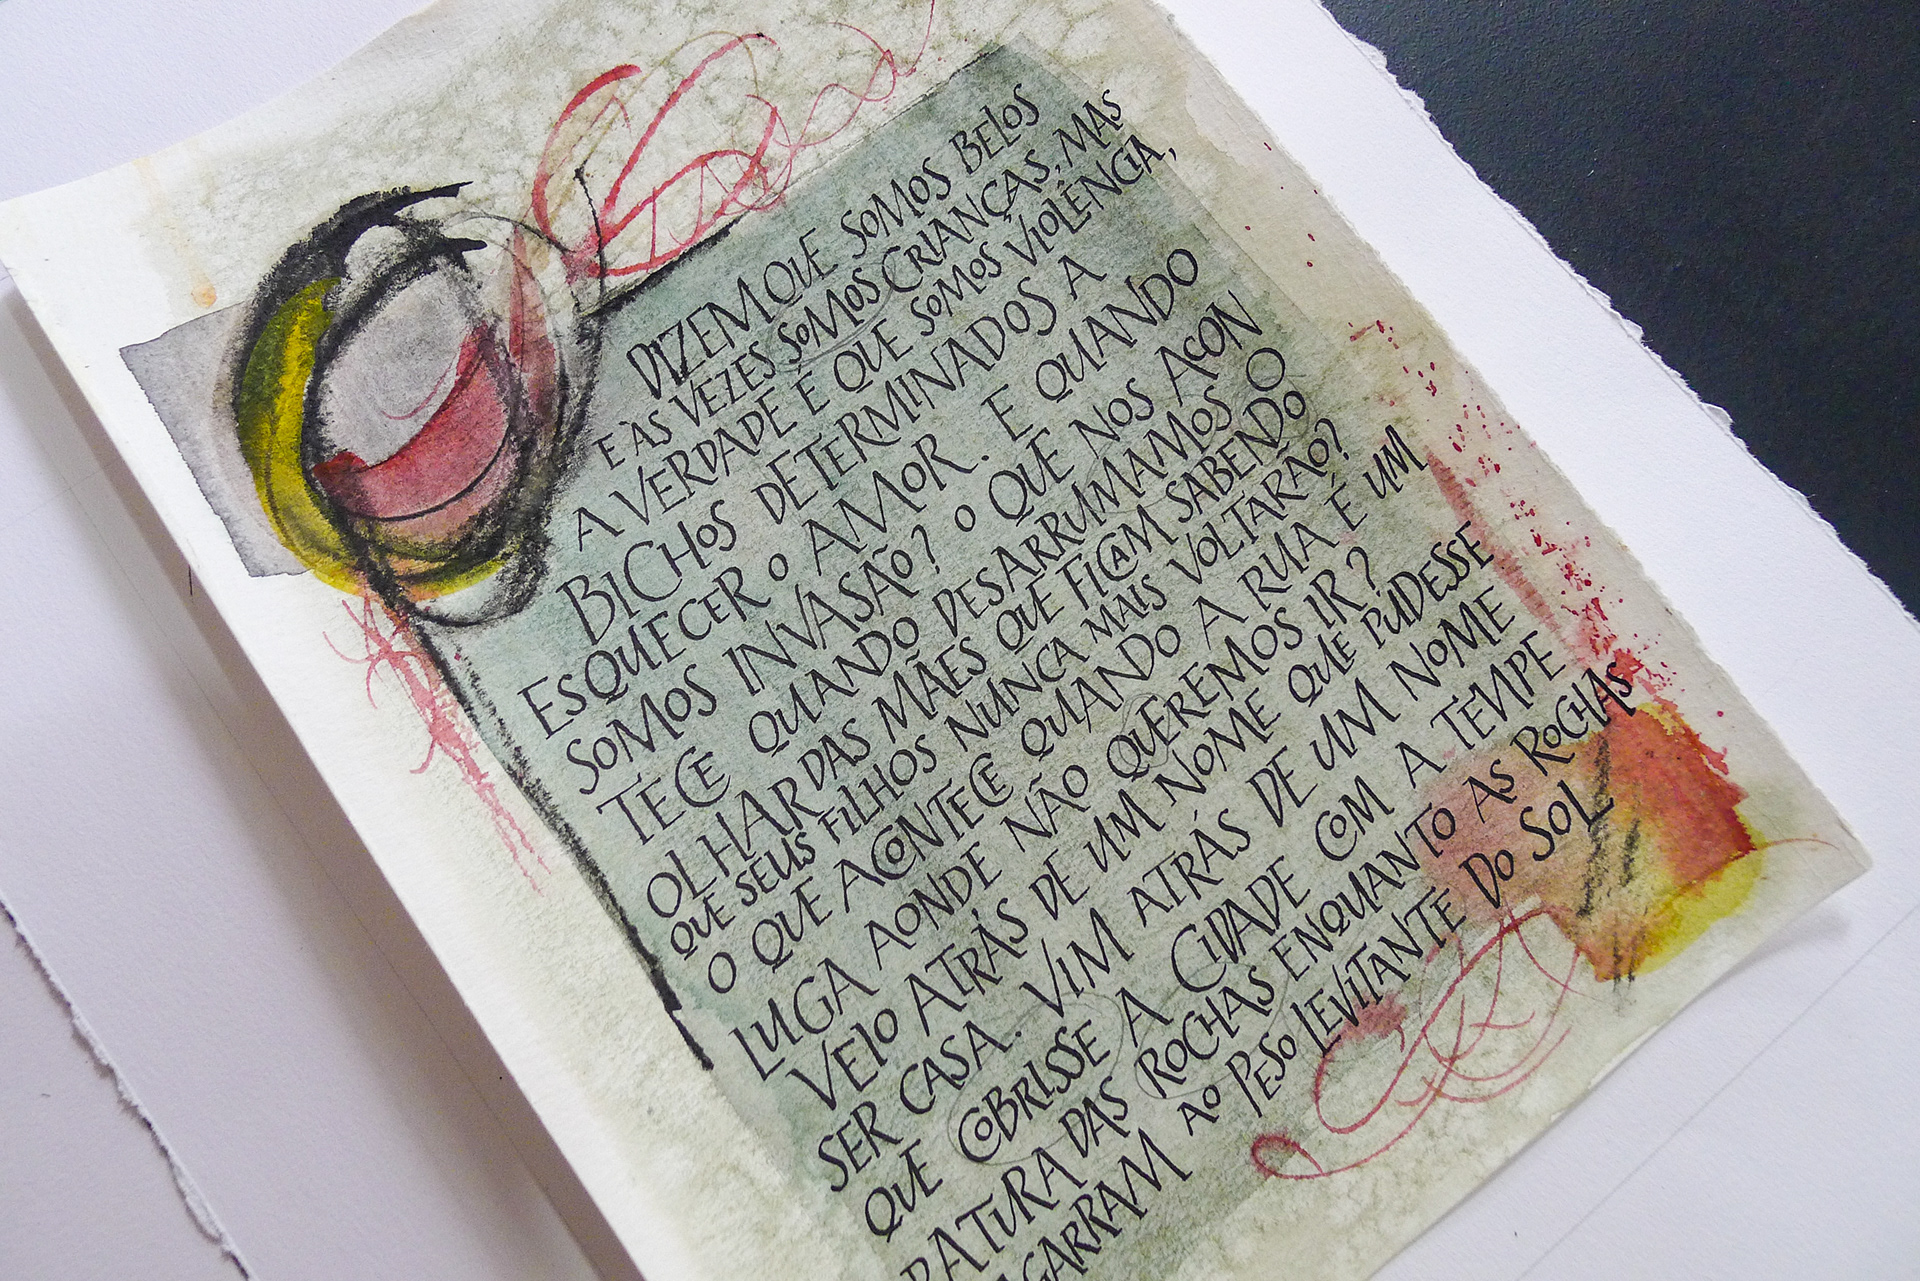 DIZEM QUE SOMOS BELOS
E ÀS VEZES SOMOS CRIANÇAS, MAS
A VERDADE É QUE SOMOS VIOLÊNCIA,
BICHOS DETERMINADOS A
ESQUECER O AMOR. E QUANDO
SOMOS INVASÃO? O QUE NOS ACON
TECE QUANDO DESARRUMAMOS O
OLHAR DAS MÃES QUE FICAM SABENDO
QUE SEUS FILHOS NUNCA MAIS VOLTARÃO?
O QUE ACONTECE QUANDO A RUA É UM
LUGA AONDE NÃO QUEREMOS IR?
VEIO ATRÁS DE UM NOME QUE PUDESSE
SER CASA. VIM ATRÁS DE UM NOME
QUE COBRISSE A CIDADE COM A TEMPE
RATURA DAS ROCHAS ENQUANTO AS ROCHAS
AGARRAM AO PESO LEVITANTE DO SOL